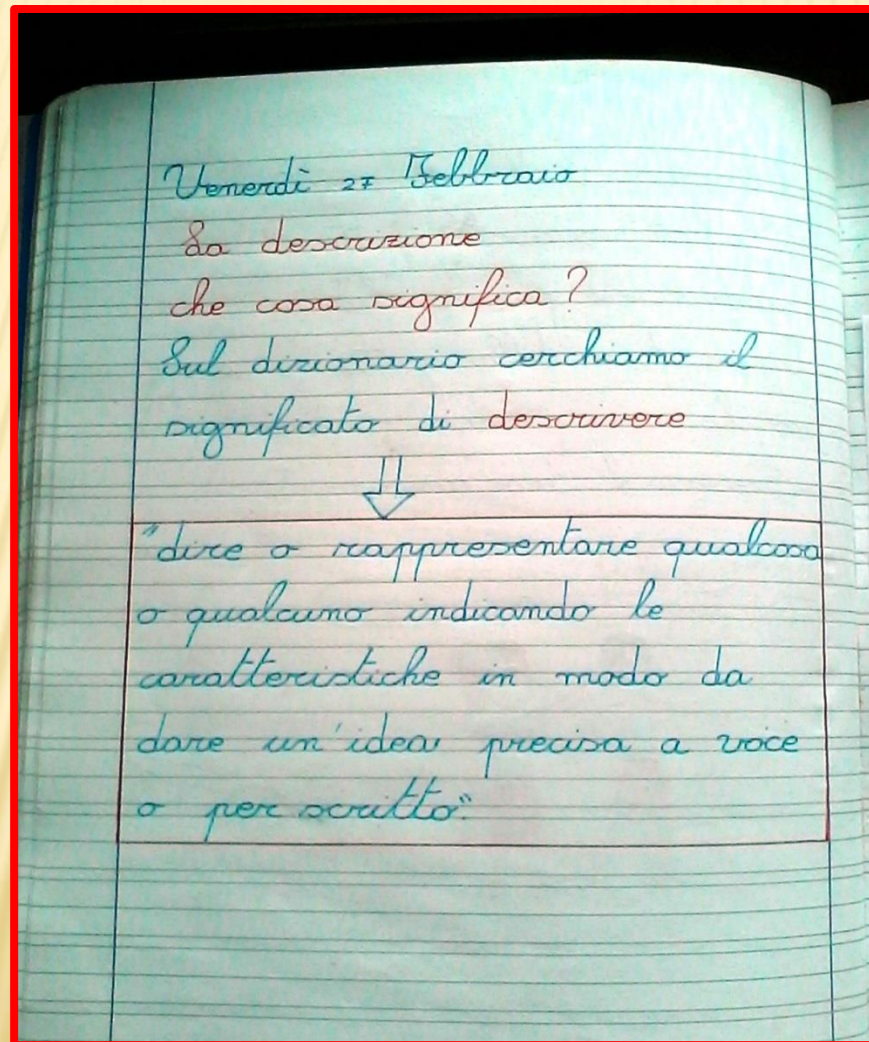 Venerdì 27 Febbraio
La descrizione
che cosa significa?
Sul dizionario cerchiamo il
significato di descrivere
"dire o rappresentare qualcosa
o qualcuno indicando le
caratteristiche in modo da
dare un'idea precisa a voce
o per scritto"